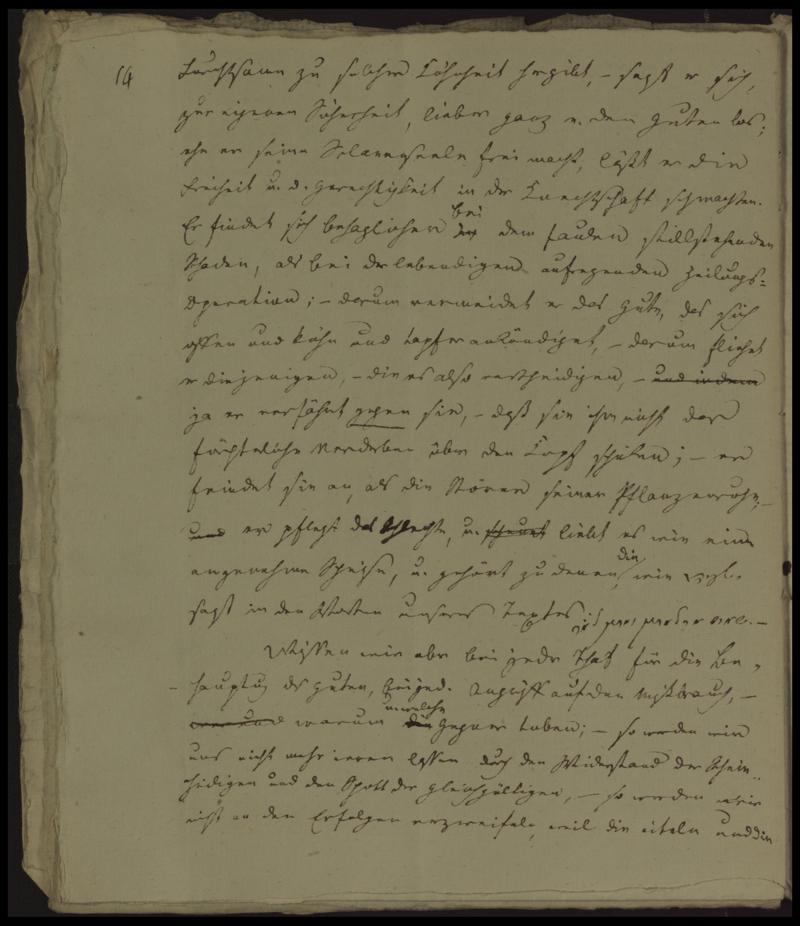 14
Furchtsamen zu solcher Kühnheit hergibt, – sagt er sich,
zur eigenen Sicherheit, lieber ganz v. dem Guten los;
ehe er seine Sclavenseele frei macht, läßt er die
Freiheit u. d. Gerechtigkeit in der Knechtschaft schmachten.
Er findet sich behaglicher bei dem faulen stillstehenden
Schaden, als bei der lebendigen aufregenden Heilungs=
operation; – darum vermeidet er das Gute, das sich
offen und kühn und tapfer ankündiget, – darum flieht
er diejenigen, – die es also vertheidigen, – und indem
ja er gegen sie, – daß sie ihm nicht das
Verderben über den Kopf ; – er
feindet sie an, als die Störer seiner Pflanzenruhe,–
und er pflegt das Schlechte, u. scheut liebt es wie eine
angenehme Speise, u. gehört zu denen, die wie
sagt in den Worten unseres Textes
Wissen wir aber bei jeder That für die Be=
hauptung des Guten, bei jed. Angriff auf den Mißbrauch, –
warum u. welche die Gegner toben; – so werden wir
uns nicht mehr irren lassen durch den Widerstand der Schein=
heiligen und den Spott der Gleichgültigen, – so werden wir
nicht an den Erfolgen verzweifeln, weil die eiteln und die